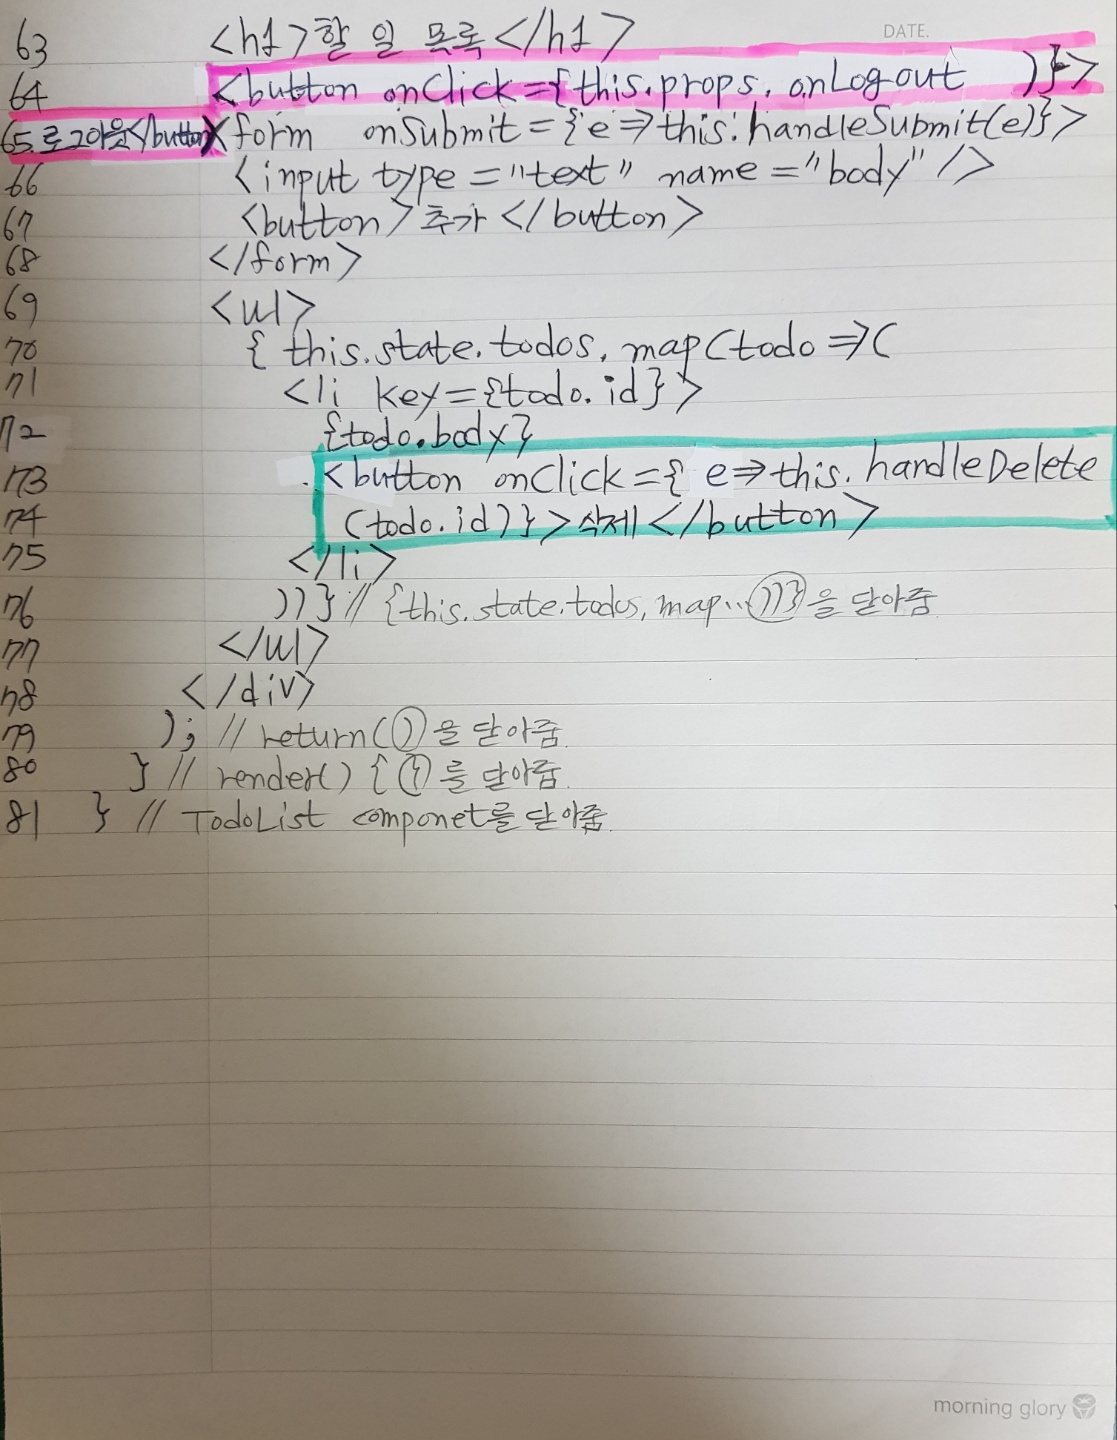 DATE.
63 <h1>할 일 목록</h1>
64 <button onClick={this.props.onLogout )}>
65 로그아웃</button><form onSubmit={e=>this.handleSubmit(e)}>
66 <input type="text" name="body"/>
67 <button>추가</button>
68 </form>
69 <ul>
70 {this.state.todos.map(todo=>(
71 <li key={todo.id}>
72 {todo.body}
73 <button onClick={e=>this.handleDelete
74 (todo.id)}>삭제</button>
75 </li>
76 ))} // {this.state.todos, map..))}을 닫아줌
77 </ul>
78 </div>
79 ); // return()을 닫아줌.
80 } // render() { }를 닫아줌.
81 } // TodoList componet를 닫아줌.
morning glory